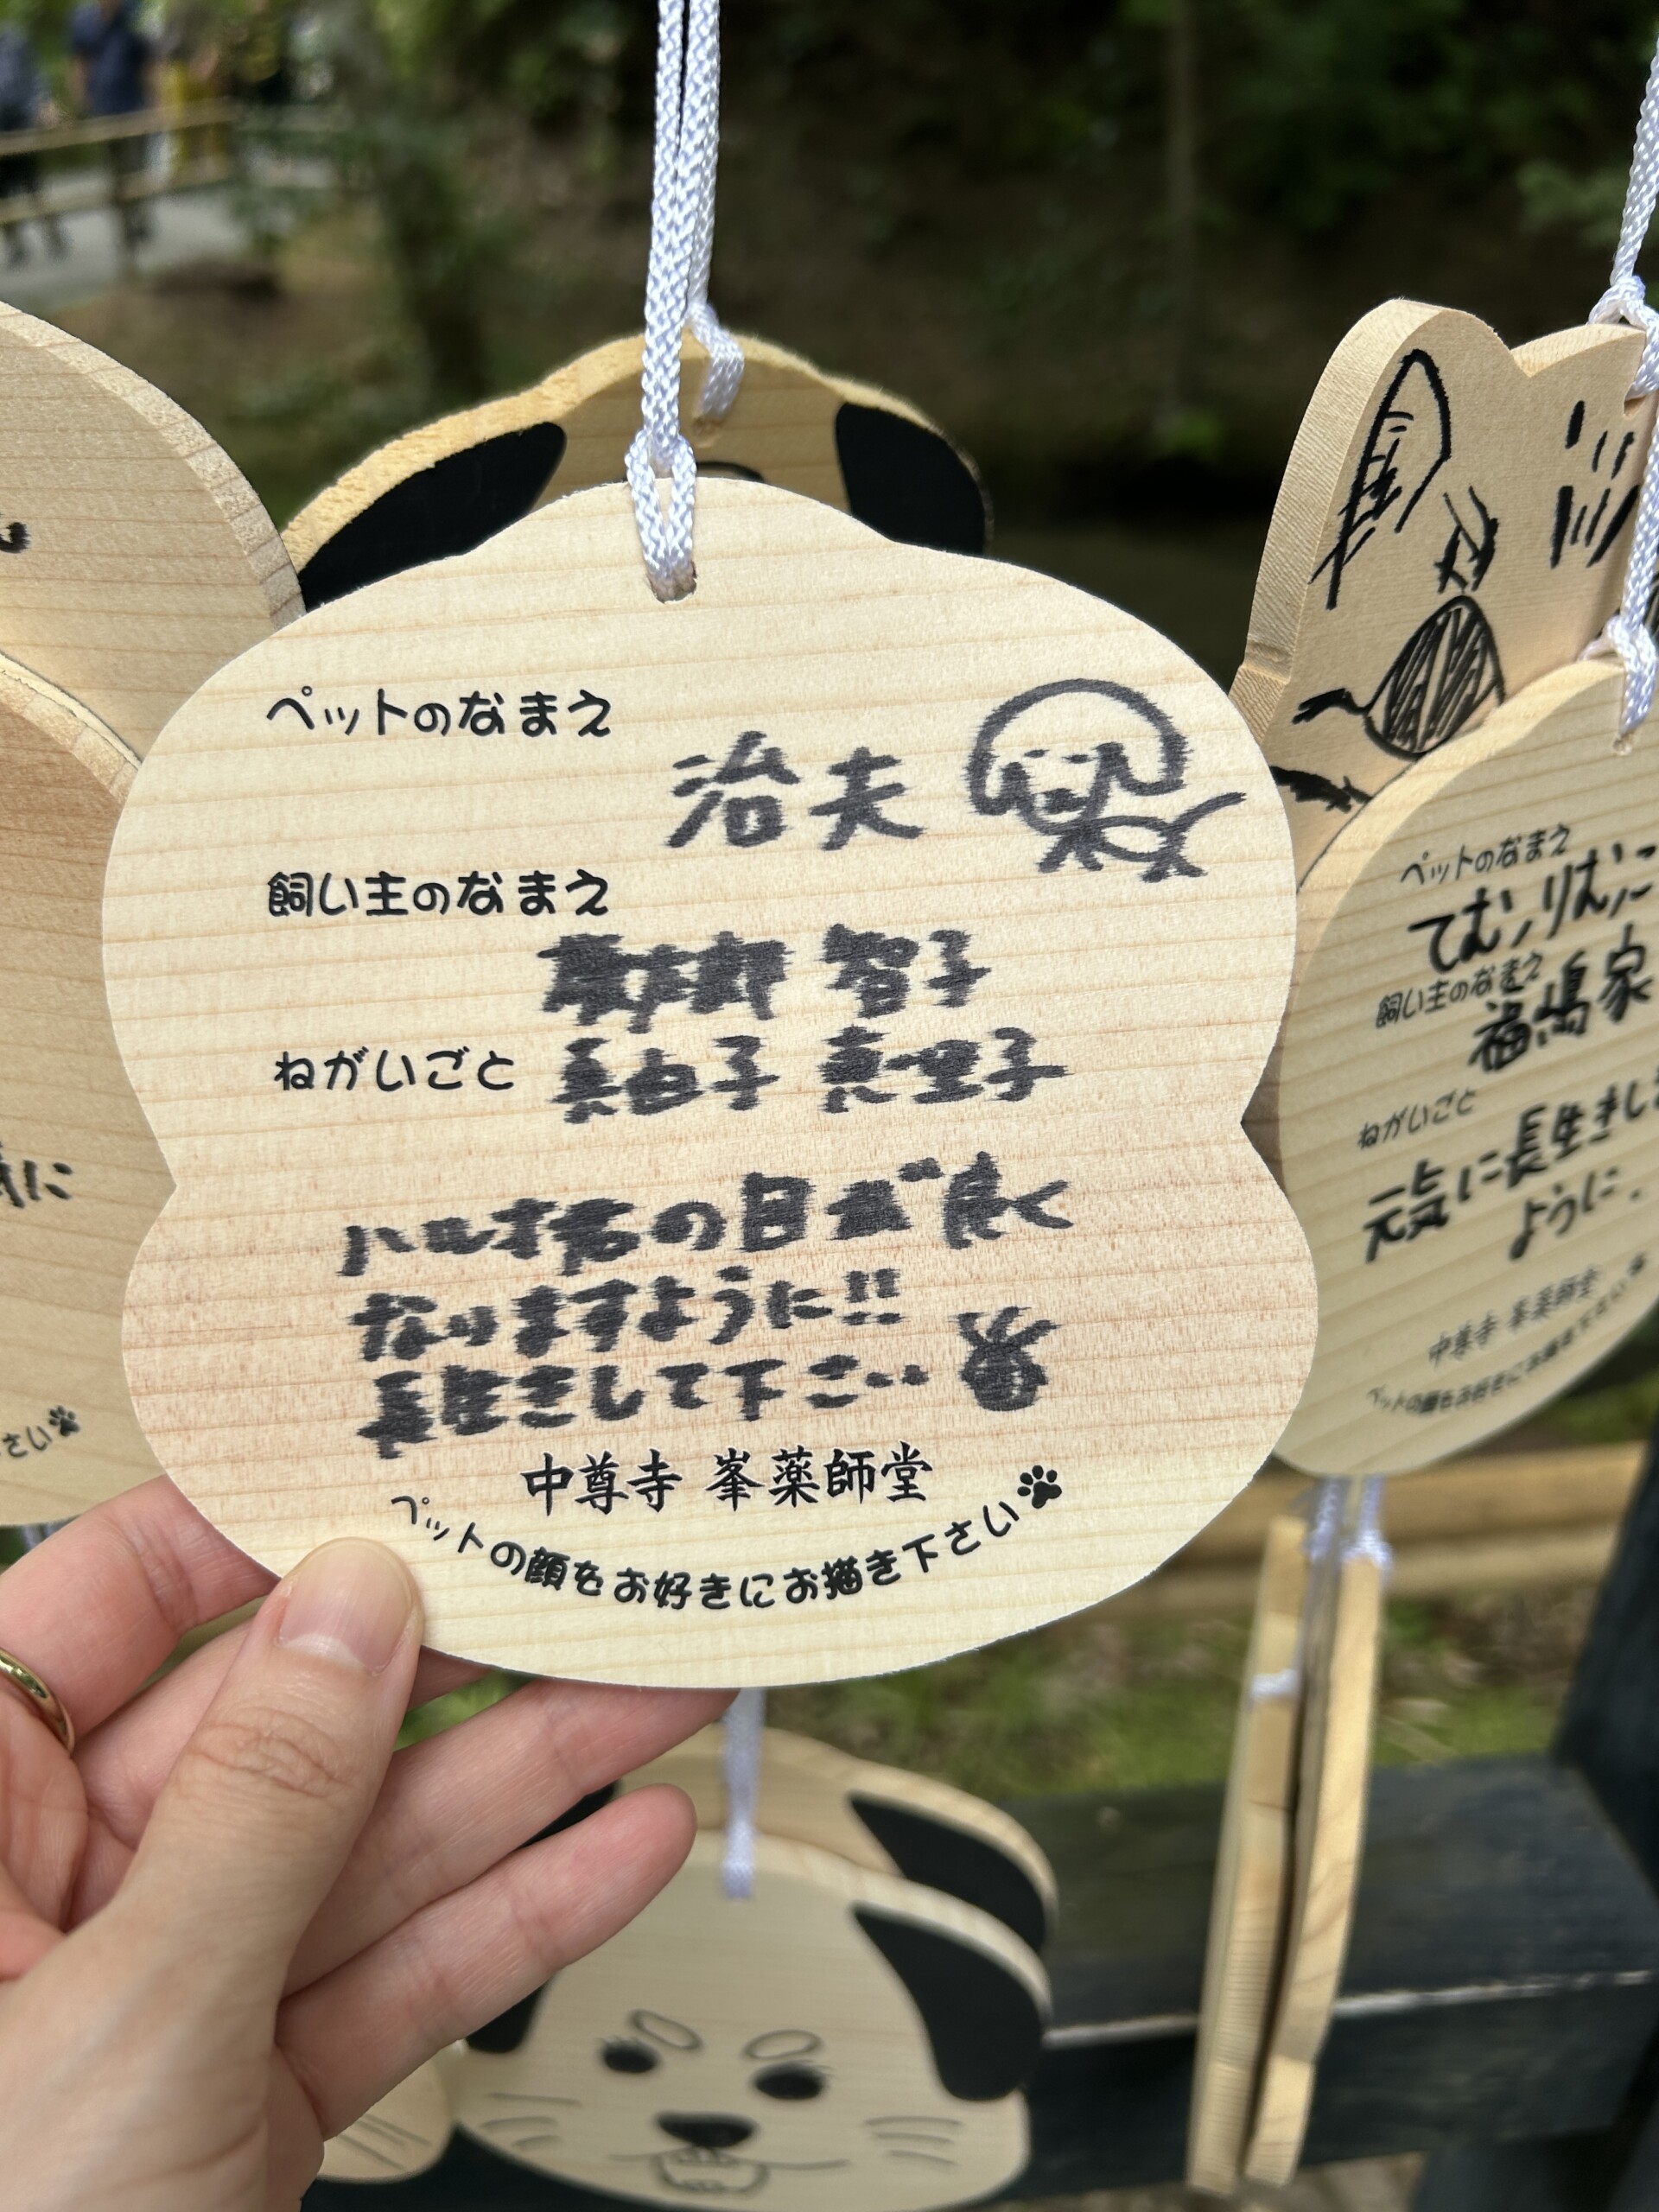 ペットのなまえ
治夫
飼い主のなまえ
智子
ねがいごと
真由子 真里子
ハルオ君の目が良く
なりますように!!
長生きして下さい
中尊寺 峯薬師堂
ペットの顔をお好きにお描き下さい
ペットのなまえ
てむ、りむ、に
飼い主のなまえ
福嶋家
ねがいごと
元気に長生きしま
ように.
中尊寺 峯薬師堂
ペットの顔をお好きにお描き下さい
に
さい